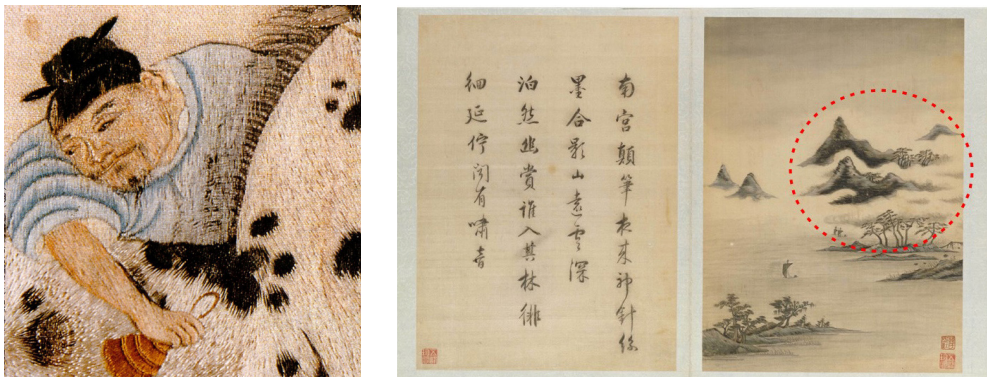 南宮顛筆夜來神針絲
墨合影山遠雲深
泊然幽賞誰入其林徘
徊延佇聞有嘯音